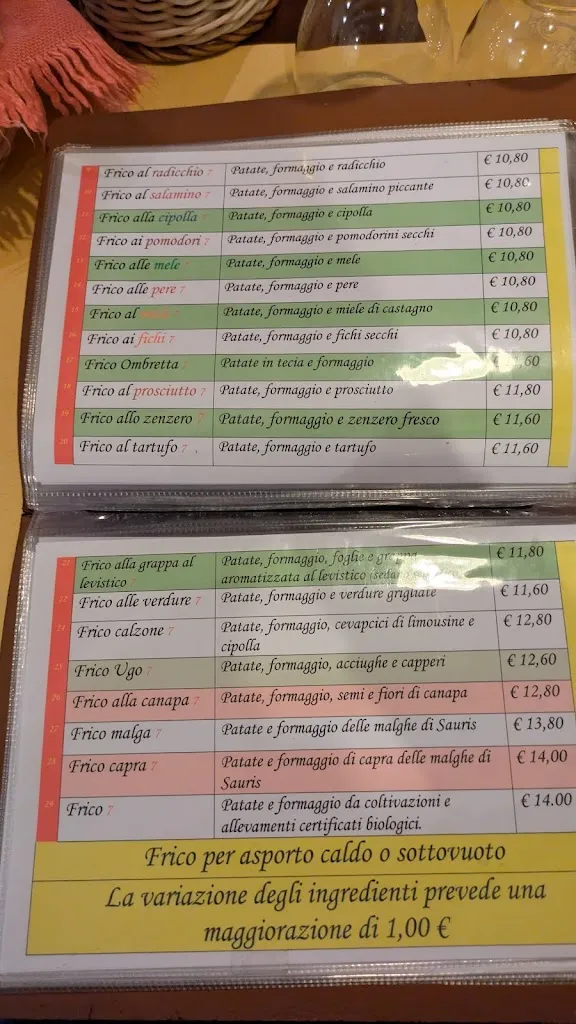 9 Frico al radicchio 7 Patate, formaggio e radicchio € 10,80
10 Frico al salamino 7 Patate, formaggio e salamino piccante € 10,80
11 Frico alla cipolla 7 Patate, formaggio e cipolla € 10,80
12 Frico ai pomodori 7 Patate, formaggio e pomodorini secchi € 10,80
13 Frico alle mele 7 Patate, formaggio e mele € 10,80
14 Frico alle pere 7 Patate, formaggio e pere € 10,80
15 Frico al 7 Patate, formaggio e miele di castagno € 10,80
16 Frico ai fichi 7 Patate, formaggio e fichi secchi € 10,80
17 Frico Ombretta 7 Patate in tecia e formaggio ,60
18 Frico al prosciutto 7 Patate, formaggio e prosciutto € 11,80
19 Frico allo zenzero 7 Patate, formaggio e zenzero fresco € 11,60
20 Frico al tartufo 7 Patate, formaggio e tartufo € 11,60
21 Frico alla grappa al Patate, formaggio, foglie e grappa € 11,80
levistico 7 aromatizzata al levistico
Frico alle verdure 7 Patate, formaggio e verdure grigliate € 11,60
24 Frico calzone 7 Patate, formaggio, cevapcici di limousine e € 12,80
cipolla
25 Frico Ugo 7 Patate, formaggio, acciughe e capperi € 12,60
26 Frico alla canapa 7 Patate, formaggio, semi e fiori di canapa € 12,80
27 Frico malga 7 Patate e formaggio delle malghe di Sauris € 13,80
28 Frico capra 7 Patate e formaggio di capra delle malghe di € 14,00
Sauris
29 Frico 7 Patate e formaggio da coltivazioni e € 14.00
allevamenti certificati biologici.
Frico per asporto caldo o sottovuoto
La variazione degli ingredienti prevede una
maggiorazione di 1,00 €